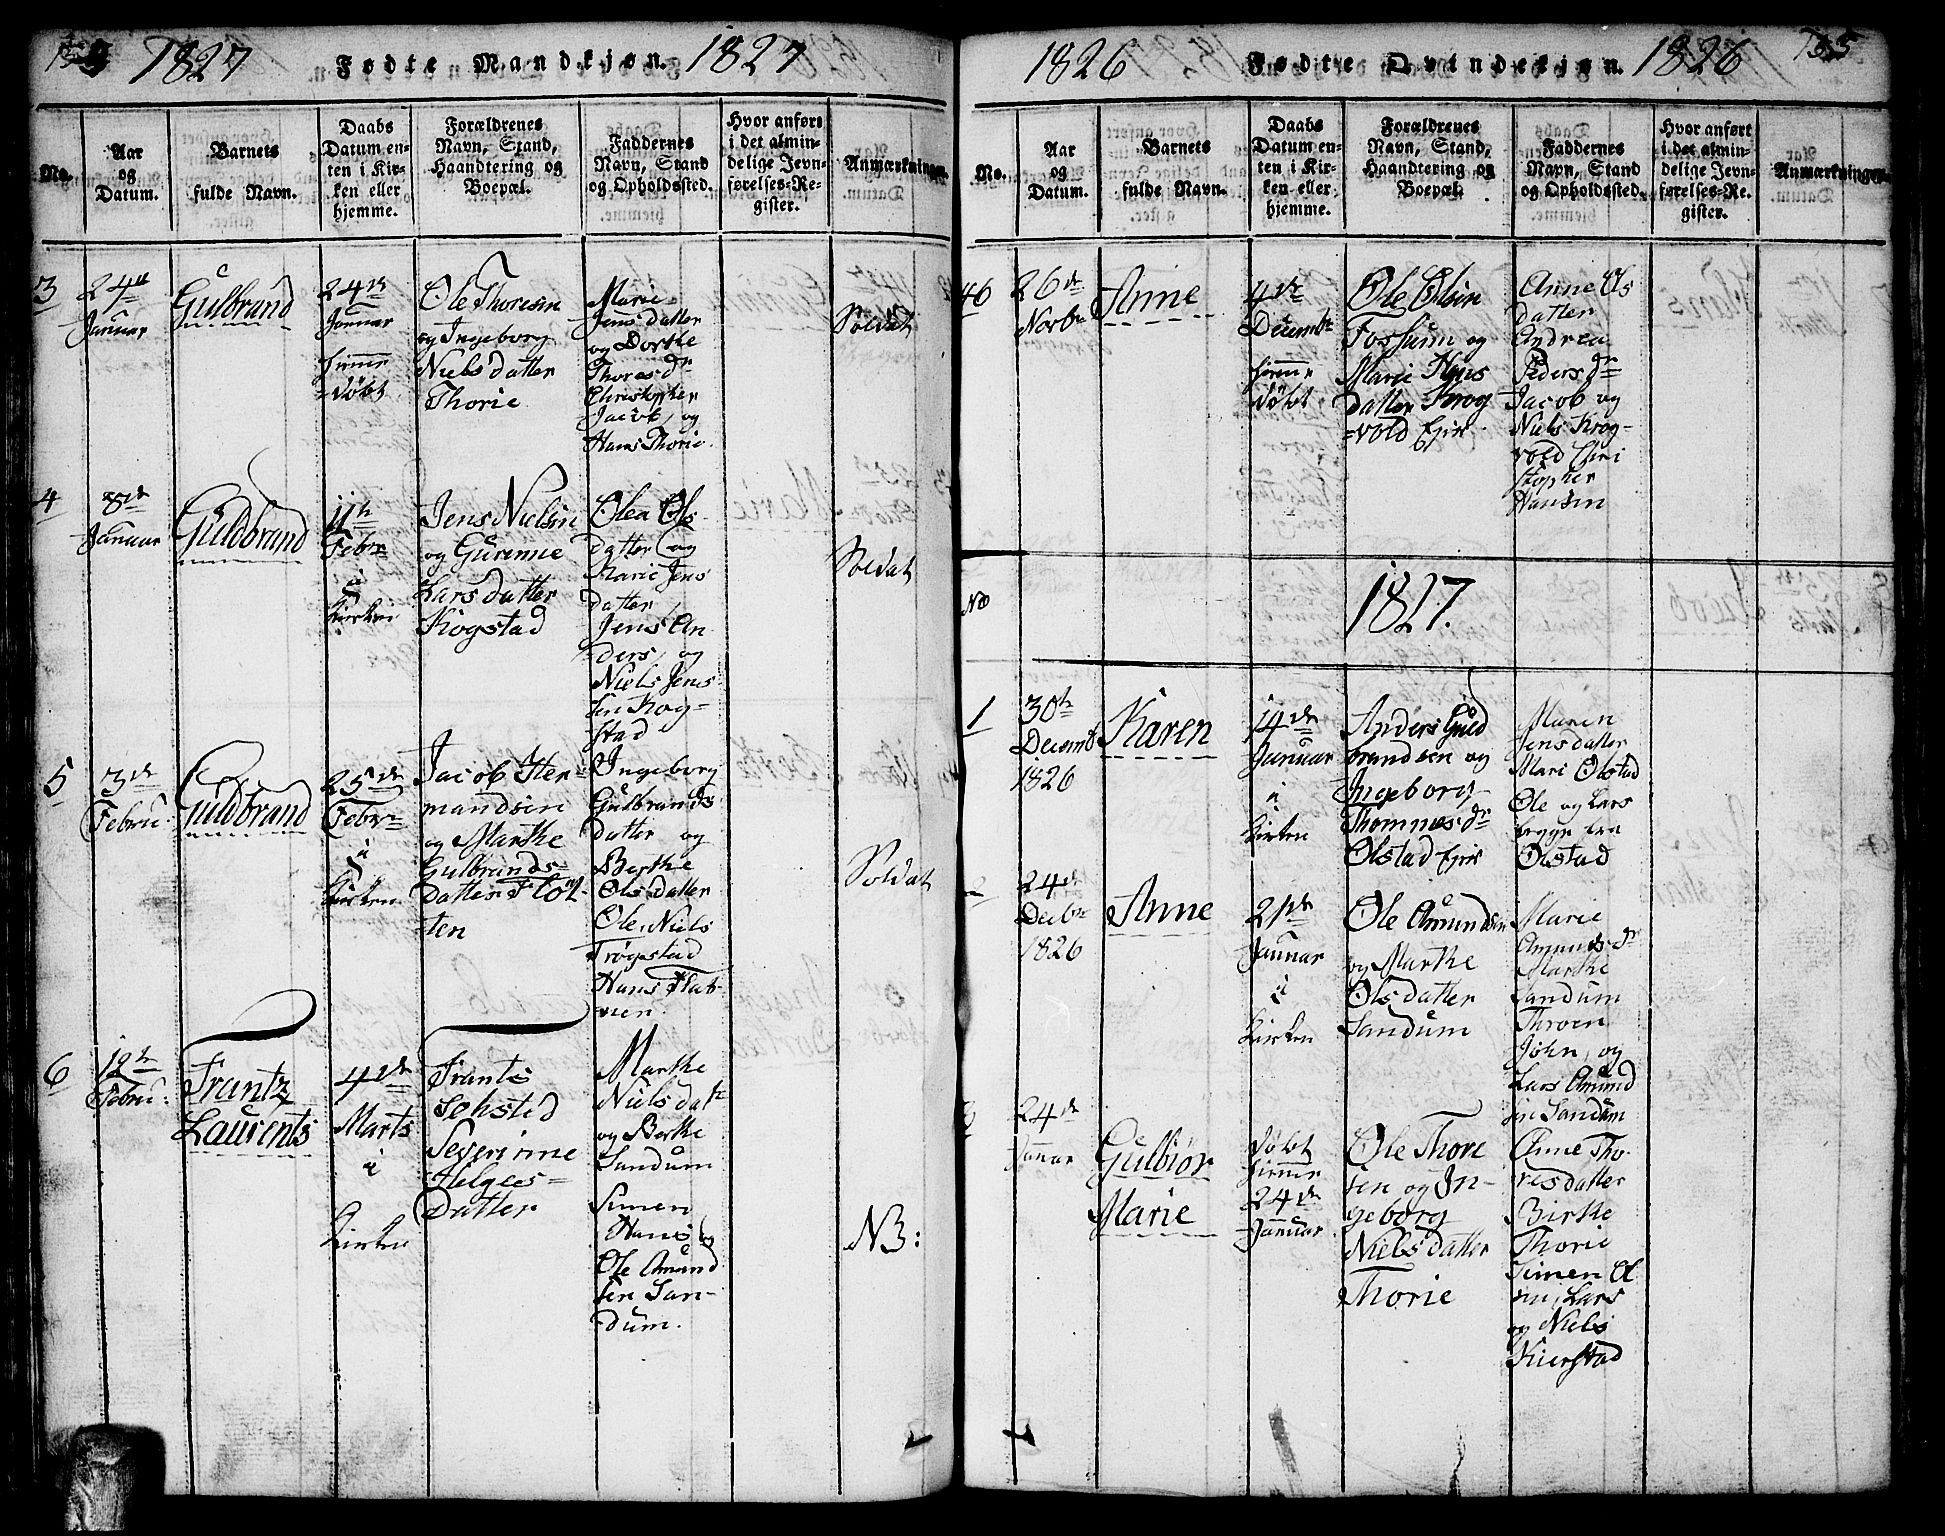 1827 Fødte Mandkjøn. 1827
No.
Aar
og
Datum.
Barnets
fulde Navn.
Daabs
Datum en-
ten i Kir-
ken eller
hjemme.
Forældrenes
Navn, Stand,
Haandtering og
Boepæl.
Faddernes
Navn, Stand
og Opholdssted.
Hvor anført
i det almin-
delige Jevn-
førelses-Re-
gister.
Anmærkninger.
3
24de
Januar
Gulbrand
24de
Januar
hiemme
døbt
Ole Thoresen
og Ingeborg
Niels datter
Thorie
Marie
Jens datter
og Dorthe
Thores dr
Christopher
Jacob, og
Hans Thorie.
Soldat
4
8de
Januar
Guldbrand
11te
Febr
i
Kirken
Jens Nielsen
og Gurenne
Lars datter
Kogstad
Olea Ols
datter og
Marie Jens
datter
Jens An
ders, og
Niels Jens
sen Kog-
stad
Soldat
5
3de
Febru:
Guldbrand
25de
Febr
i
Kirken
Jacob Her-
mandsen
og Marthe
Gulbrands-
datter Flot
ten
Ingeborg
Gulbrands
datter og
Berthe
Ols datter
Ole, Niels
Trøgstad
Hans Flat-
nen.
Soldat
6
12te
Febru:
Frantz
Laurents
4de
Marts
i
Kirken
Frants
Sehsted
Severinne
Helges-
Datter
Marthe
Niels datr
og Berthe
Sandum
Simen
Hans og
Ole Amund
sen San-
dum.
NB:
1826 Fødte Qvindekjøn. 1826 135
No.
Aar
og
Datum.
Barnets
fulde Navn.
Daabs
Datum en-
ten i Kir-
ken eller
hjemme.
Forældrenes
Navn, Stand,
Haandtering og
Boepæl.
Faddernes
Navn, Stand
og Opholdssted.
Hvor anført
i det almin-
delige Jevn-
førelses-Re-
gister.
Anmærkninger.
46
26de
Novbr
Anne
4de
Decembr
hiemme
døbt
Ole Olsen
Fossum og
Marie Hans
datter Krog
-vold Ejer
Anne Ols
datter
Andrea
Peders dr
Jacob og
Niels Krog-
vold Chri
stopher
Hansen
No
1827.
1
30te
Decemb
1826
Karen
14de
Januar
i
Kirken
Anders Guld
brandsen og
Ingeborg
Thommes dr
Olstad Ejer
Maren
Jens datter
Mari Olstad
Ole og Lars
begge fra
Olstad
2
24de
Decbr
1826
Anne
21de
Januar
i
Kirken
Ole Amundsen
og Marthe
Ols datter
Sandum
Marie
Amunds dr
Marthe
Sandum
Throen
John, og
Lars Amund
sen Sandum
3
24de
Januar
Gulbiør
Marie
døbt
hiemme
24de
Januar
Ole Thore
sen og In-
geborg
Niels datter
Thorie
Anne Tho-
res datter
Birthe
Thorie
Simen Ol
sen, Lars
og Niels